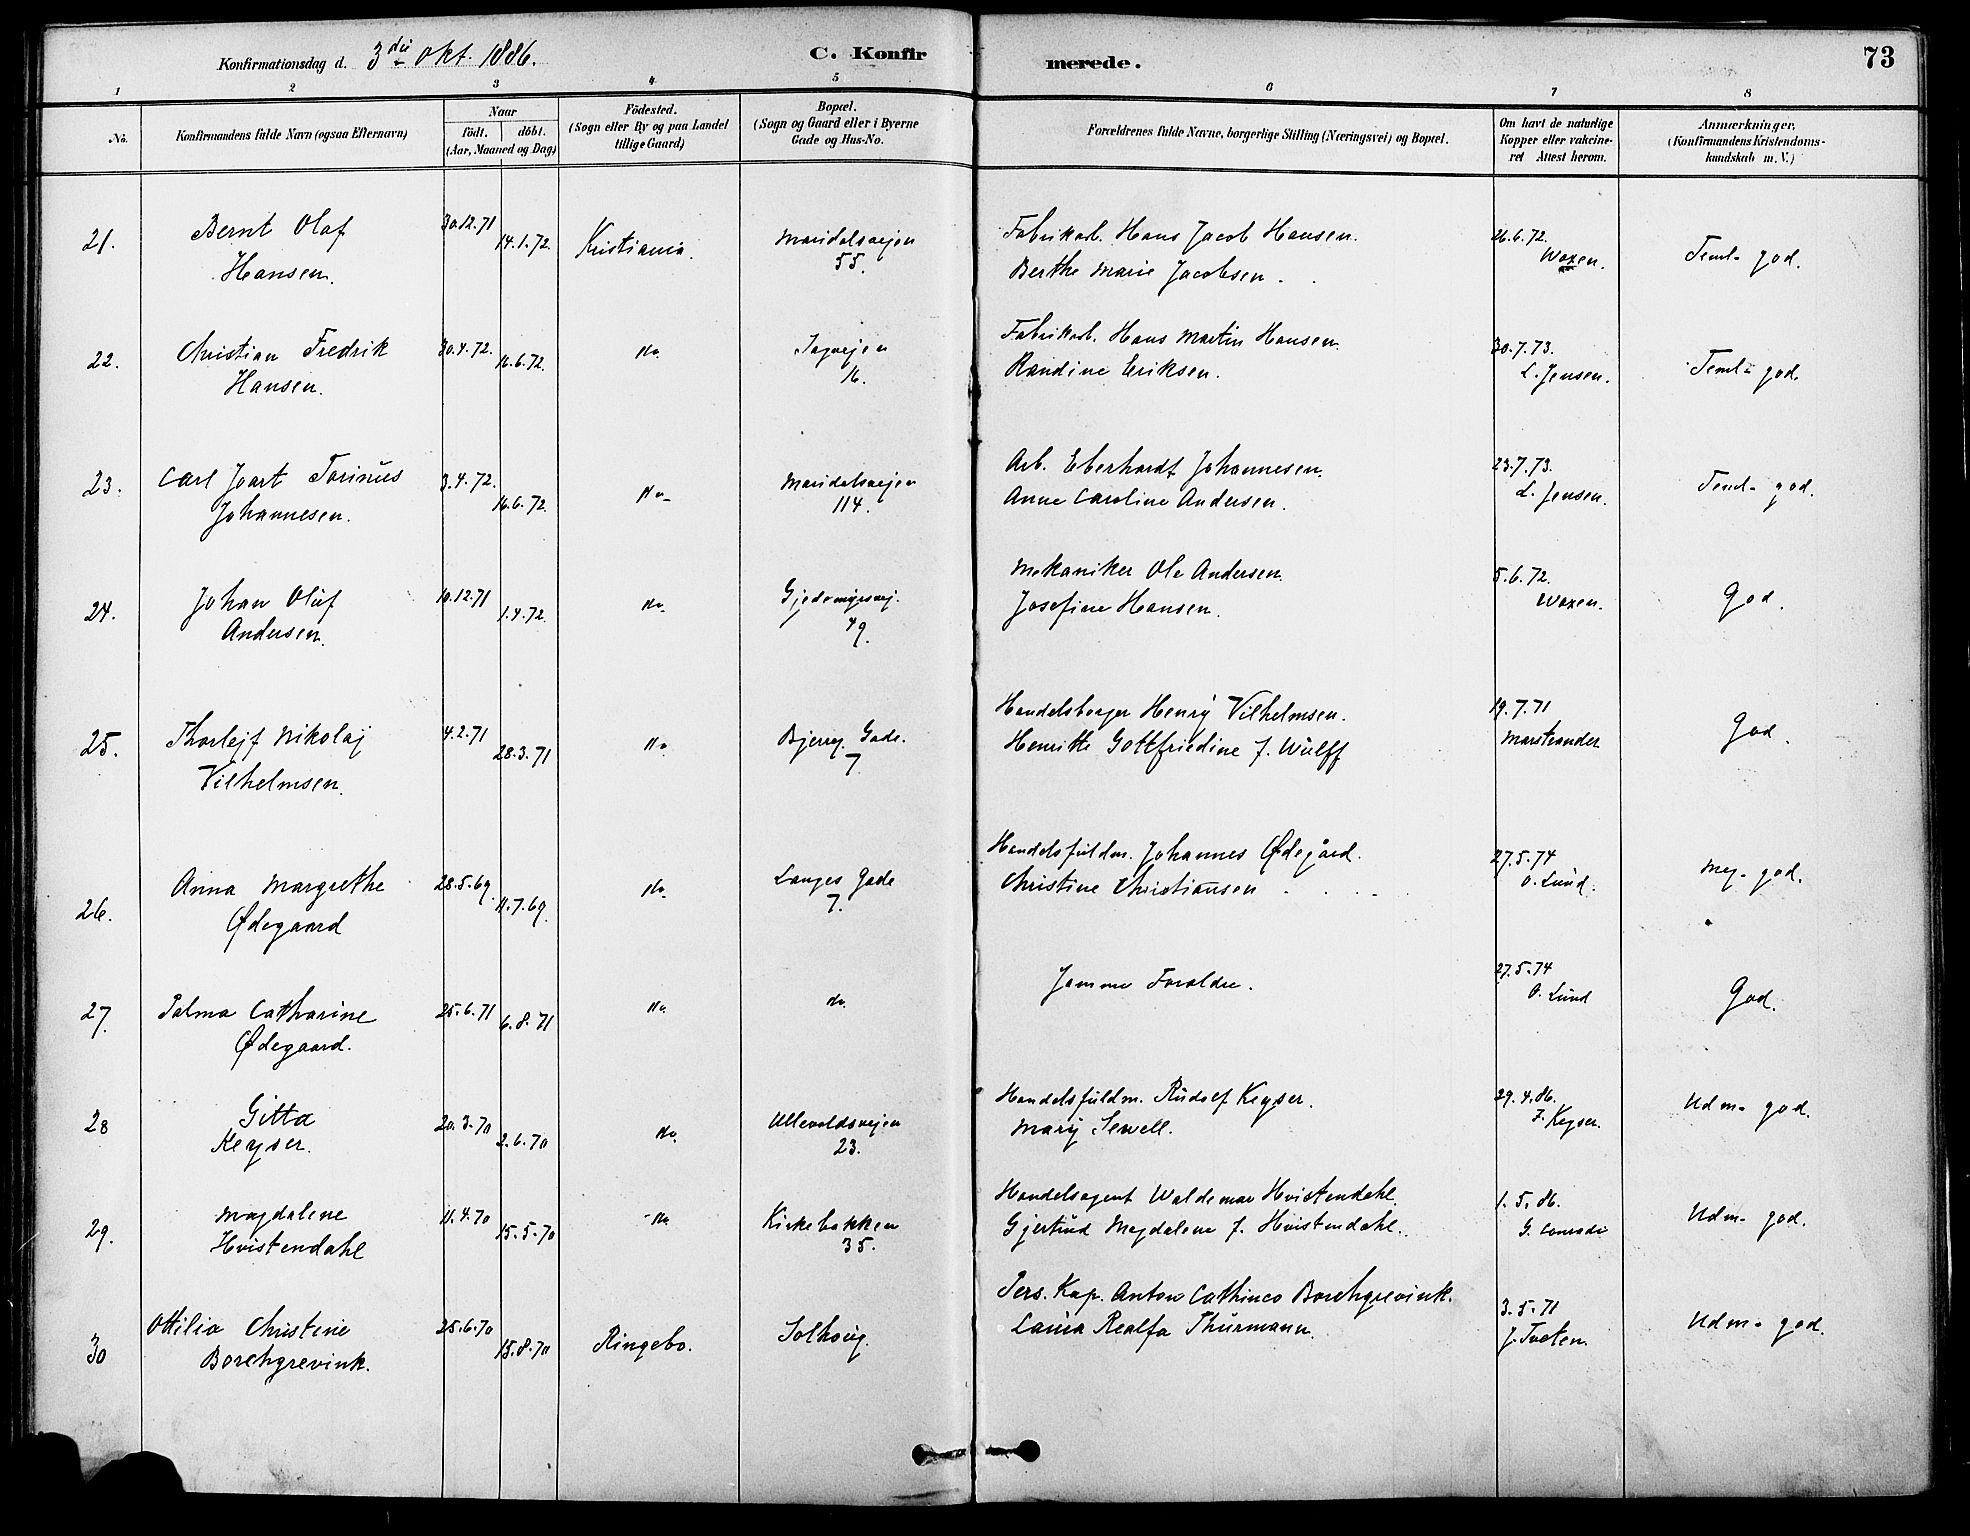 Konfirmationsdag d. 3die Okt. 1886.
C. Konfirmerede.
73
1 2 3 4 5 6 7 8
No.
Konfirmandens fulde Navn (ogsaa Efternavn)
Naar
födt. döbt.
(Aar, Maaned og Dag)
Födested.
(Sogn eller By og paa Landet
tillige Gaard)
Bopæl.
(Sogn og Gaard eller i Byerne
Gade og Hus-No.
Forældrenes fulde Navne, borgerlige Stilling (Næringsvei) og Bopæl.
Om havt de naturlige
Kopper eller vakcine-
ret Attest herom.
Anmærkninger.
(Konfirmandens Kristendoms-
kundskab m. V.)
21. Bernt Olaf
Hansen.
30.12.71
14.1.72.
Kristiania.
Maridalsvejen
55.
Fabrikarb. Hans Jacob Hansen.
Berthe Marie Jacobsen.
26.6.72.
Woxen.
Teml. god.
22. Christian Fredrik
Hansen.
30.4.72.
16.6.72.
Do.
Sagvejen
16.
Fabrikarb. Hans Martin Hansen.
Randine Eriksen.
30.7.73.
L. Jensen.
Teml. god.
23. Carl Joart Torinus
Johannesen.
3.4.72.
16.6.72.
Do.
Maridalsvejen
114.
Arb. Eberhardt Johannesen.
Anne Caroline Andersen.
23.7.73.
L. Jensen.
Teml. god.
24. Johan Oluf
Andersen.
10.12.71
1.4.72.
Do.
Gjedemyrsvej.
49.
Mekaniker Ole Andersen.
Josefine Hansen.
5.6.72.
Woxen.
God.
25. Thorlejf Nikolaj
Vilhelmsen.
4.2.71
28.3.71
Do.
Bjerreg. Gade.
7.
Handelsborger Henry Vilhelmsen.
Henritte Gottfriedine f. Wulff
19.7.71
Marstrander
God.
26. Anna Margrethe
Ødegaard
28.5.69.
11.7.69.
Do.
Langes Gade
7.
Handelsfuldm. Johannes Ødegård.
Christine Christiansen
27.5.74
O. Lund.
Meg. god.
27. Palma Catharine
Ødegaard.
25.6.71
6.8.71
Do.
Do.
Samme Foraldre.
27.5.74
O. Lund
God.
28 Gitta
Keyser.
20.3.70
2.6.70
Do.
Ullevoldsvejen
23.
Handelsfuldm. Rudolf Keyser.
Mary Sewell.
29.4.86.
F. Keyser.
Udm. god.
29. Magdalene
Hvistendahl
11.4.70
15.5.70
Do
Kirkebakken
35.
Handelsagent Waldemar Hvistendahl.
Gjertrud Magdalene f. Hvistendahl.
1.5.86.
G. Conradi
Udm. god.
30 Ottilia Christine
Borchgrevink.
25.6.70
15.8.70
Ringebo.
Solhoug.
Pers. Kap. Anton Cathinco Borchgrevink.
Laura Realfa Thurmann.
3.5.71
J. Tveten.
Udm. god.